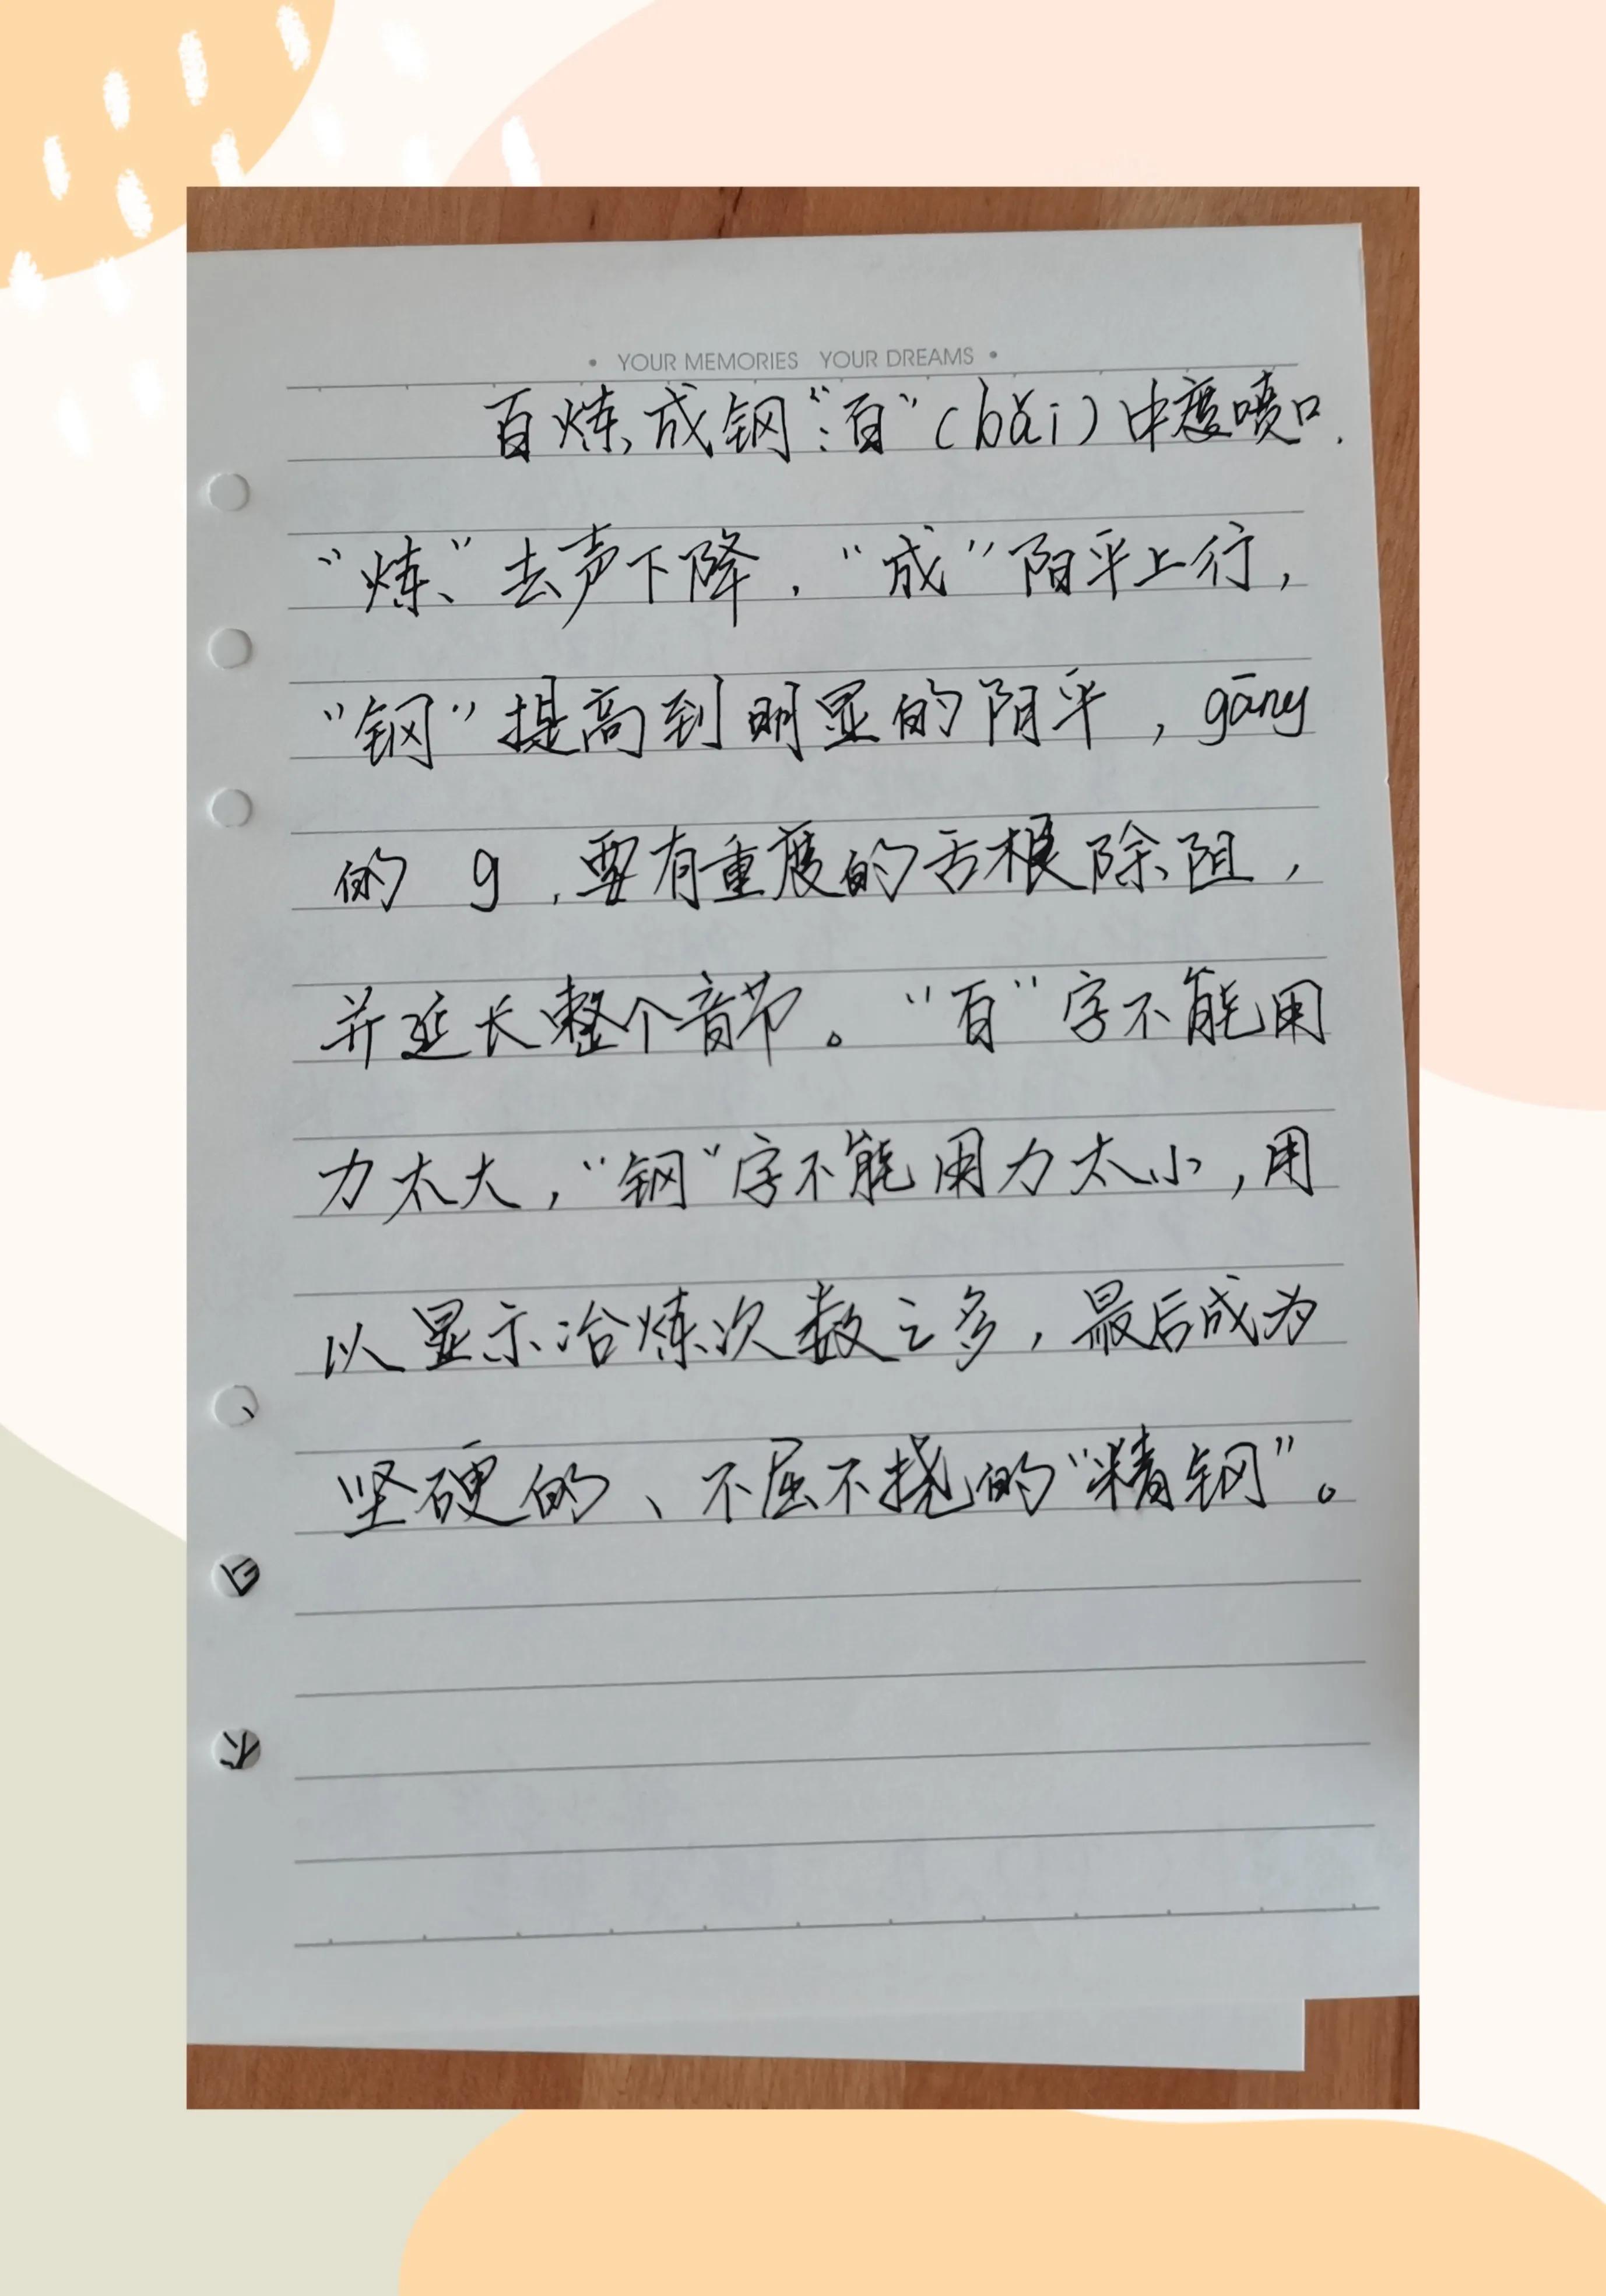 • YOUR MEMORIES YOUR DREAMS •
百炼成钢:“百”(bǎi)中度喷口.
“炼”去声下降,“成”阳平上行,
“钢”提高到明显的阴平,gāng
的 g,要有重度的舌根除阻,
并延长整个音节。“百”字不能用
力太大,“钢”字不能用力太小,用
以显示冶炼次数之多,最后成为
坚硬的、不屈不挠的“精钢”。